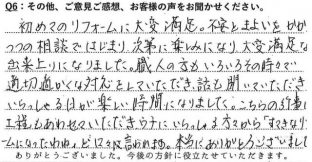 Q6：その他、ご意見ご感想、お客様の声をお聞かせください。
初めてのリフォームに大変満足。不安とまよいをかかえ
つつの相談ではじまり、次第に楽しみになり大変満足な
出来上りになりました。職人の方もいろいろその時々で
適切適かくな対応をしていただき、話も聞いていただき
いらっしゃる日が楽しい時間になりました。こちらの行事に
工程もあわせていただきウチにいらっしゃる方々から"すてきなリフォ
ームになったわね"と口々に言われます。本当にありがとうございました
ありがとうございました。今後の方針に役立たせていただきます。